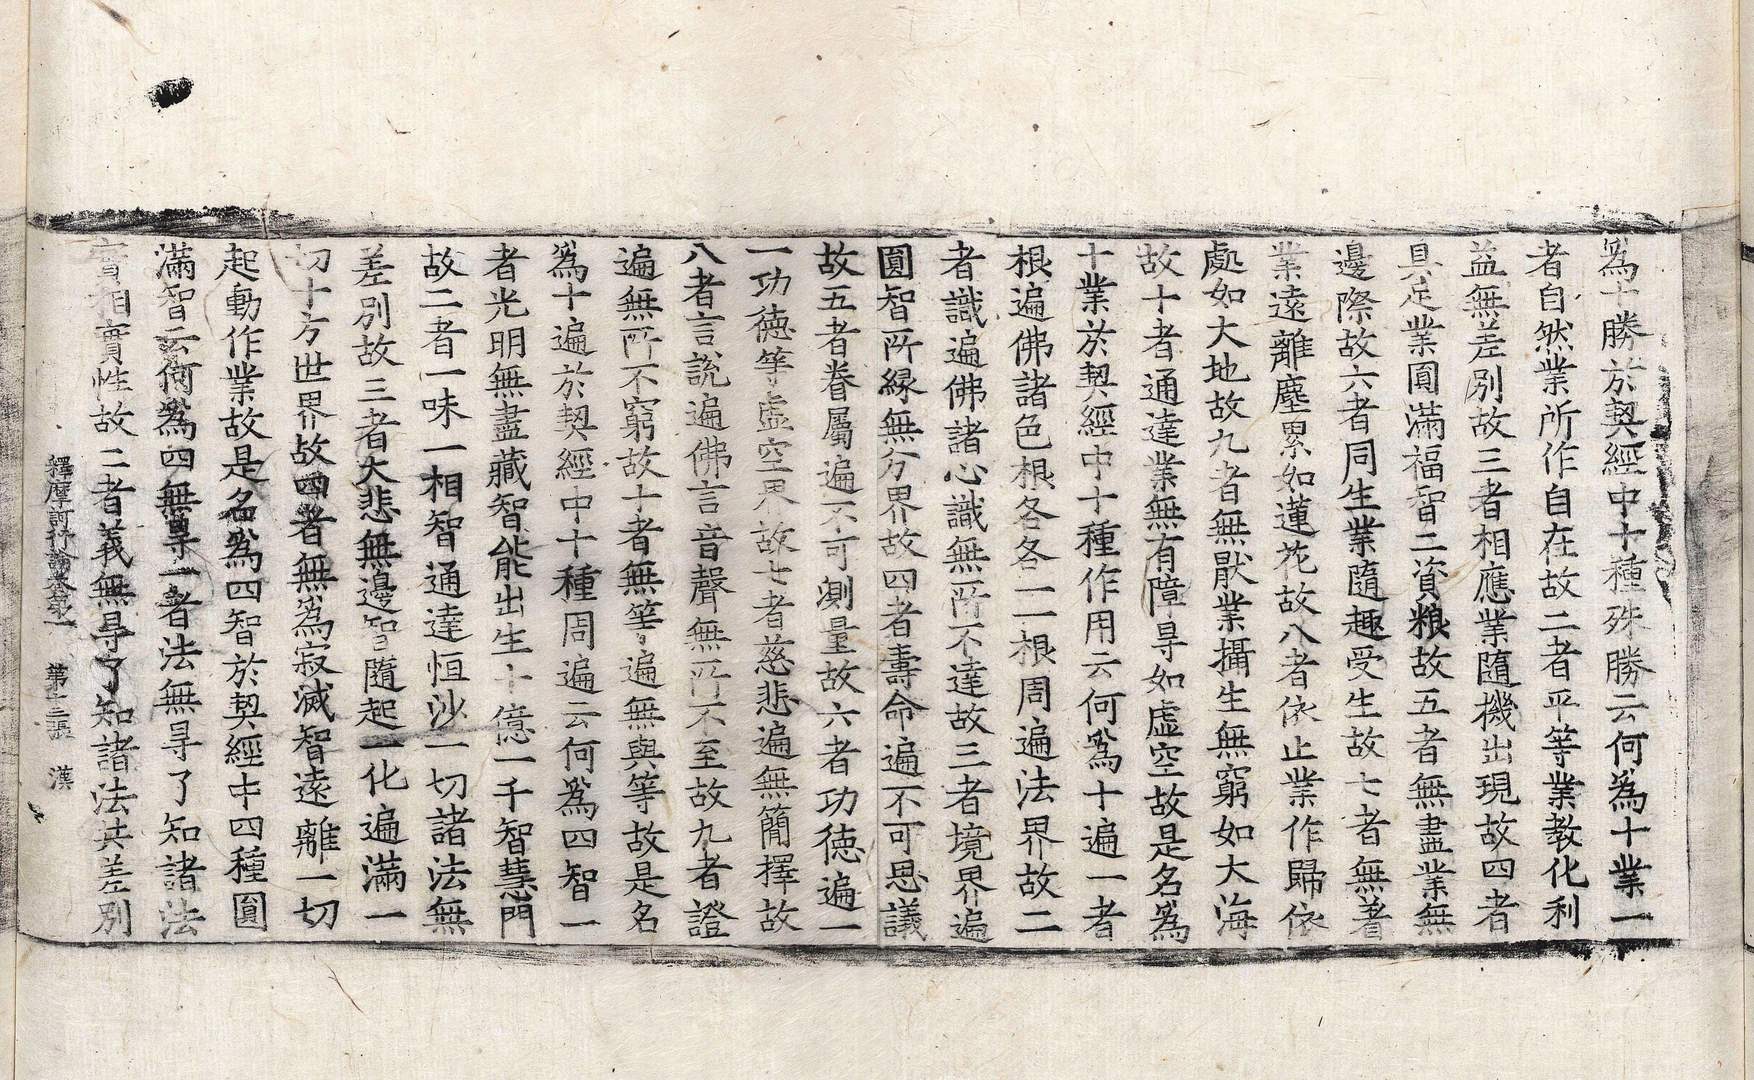 爲十勝於契經中十種殊勝云何爲十業一
者自然業所作自在故二者平等業教化利
益無差別故三者相應業隨機出現故四者
具足業圓滿福智二資粮故五者無盡業無
邊際故六者同生業隨趣受生故七者無著
業遠離塵累如蓮花故八者依止業作歸依
處如大地故九者無猒業攝生無窮如大海
故十者通達業無有障㝵如虛空故是名爲
十業於契經中十種作用云何爲十遍一者
根遍佛諸色根各各一一根周遍法界故二
者識遍佛諸心識無所不達故三者境界遍
圓智所緣無分界故四者壽命遍不可思議
故五者眷屬遍不可測量故六者功德遍一
一功德等虛空界故七者慈悲遍無簡擇故
八者言說遍佛言音聲無所不至故九者證
遍無所不窮故十者無等遍無與等故是名
爲十遍於契經中十種周遍云何爲四智一
者光明無盡藏智能出生十億一千智慧門
故二者一味一相智通達恒沙一切諸法無
差別故三者大悲無邊智隨起一化遍滿一
切十方世界故四者無爲寂滅智遠離一切
起動作業故是名爲四智於契經中四種圓
滿智云何爲四無㝵一者法無㝵了知諸法
實相實性故二者義無㝵了知諸法共差別
釋摩訶衍論卷第一 第十三張 漢